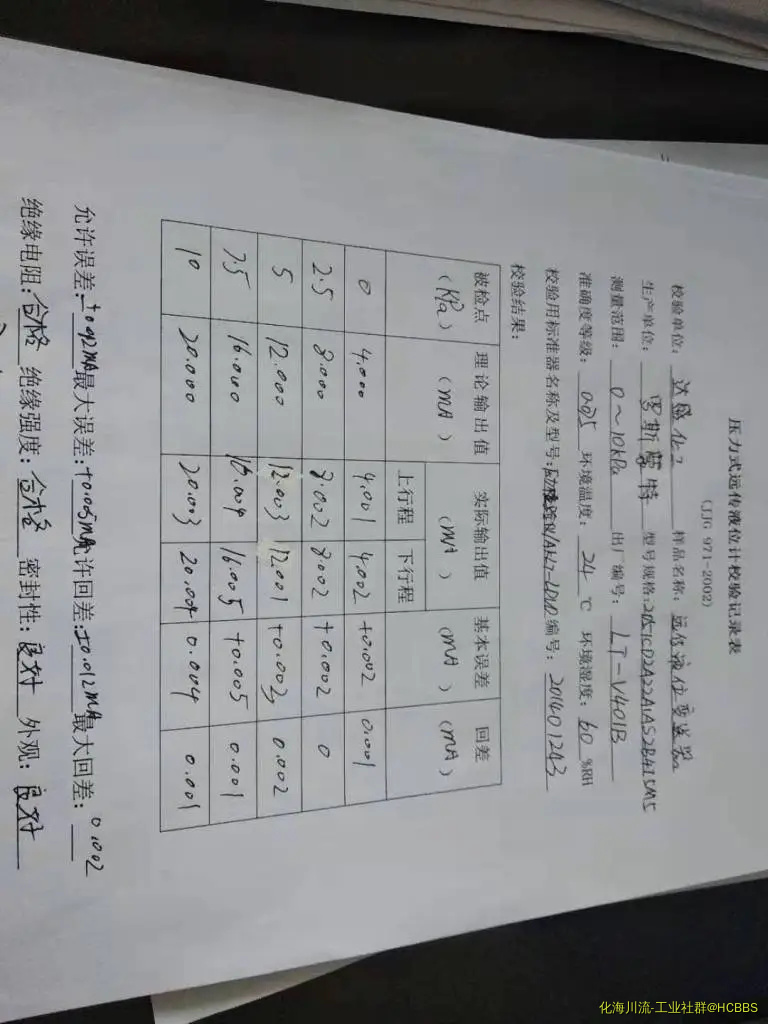 压力式远传液位计校验记录表
(JJG 971-2002)
校验单位: 达盛化工 样品名称: 远传液位变送器
生产单位: 罗斯蒙特 型号规格: 2051CD2A22A1AS2B4I5M5
测量范围: 0~10kPa 出厂编号: LT-V401B
准确度等级: 0.075 环境温度: 24 ℃ 环境湿度: 60 %RH
校验用标准器名称及型号: 编号: 201401243
校验结果:
被检点 (KPa) 理论输出值 (mA) 实际输出值 (mA) 基本误差 (mA) 回差 (mA)
上行程 下行程
0 4.000 4.001 4.002 +0.002 0.001
2.5 8.000 8.002 8.002 +0.002 0
5 12.000 12.003 12.001 +0.003 0.002
7.5 16.000 16.004 16.005 +0.005 0.001
10 20.000 20.003 20.004 0.004 0.001
允许误差: 最大误差: +0.005mA 允许回差: ±0.012mA 最大回差: 0.002
绝缘电阻: 合格 绝缘强度: 合格 密封性: 良好 外观: 良好
化海川流-工业社群@HCBBS